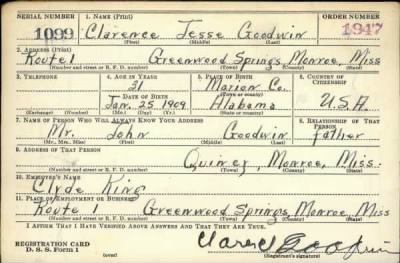 SERIAL NUMBER 1. NAME (Print) ORDER NUMBER
1099 Clarence Jesse Goodwin 1947
(First) (Middle) (Last)
2. ADDRESS (Print)
Route 1 Greenwood Springs, Monroe, Miss
(Number and street or R. F. D. number) (Town) (County) (State)
3. TELEPHONE 4. AGE IN YEARS 5. PLACE OF BIRTH 6. COUNTRY OF CITIZENSHIP
31 Marion Co.
DATE OF BIRTH (Town or county)
Jan. 25 1909 Alabama U.S.A.
(Exchange) (Number) (Mo.) (Day) (Yr.) (State or country)
7. NAME OF PERSON WHO WILL ALWAYS KNOW YOUR ADDRESS 8. RELATIONSHIP OF THAT PERSON
Mr. John Goodwin father
(Mr., Mrs., Miss) (First) (Middle) (Last)
9. ADDRESS OF THAT PERSON
Quincy, Monroe, Miss.
(Number and street or R. F. D. number) (Town) (County) (State)
10. EMPLOYER'S NAME
Clyde King
11. PLACE OF EMPLOYMENT OR BUSINESS
Route 1 Greenwood Springs, Monroe, Miss
(Number and street or R. F. D. number) (Town) (County) (State)
I AFFIRM THAT I HAVE VERIFIED ABOVE ANSWERS AND THAT THEY ARE TRUE.
REGISTRATION CARD
D. S. S. Form 1 (over) (Registrant's signature)